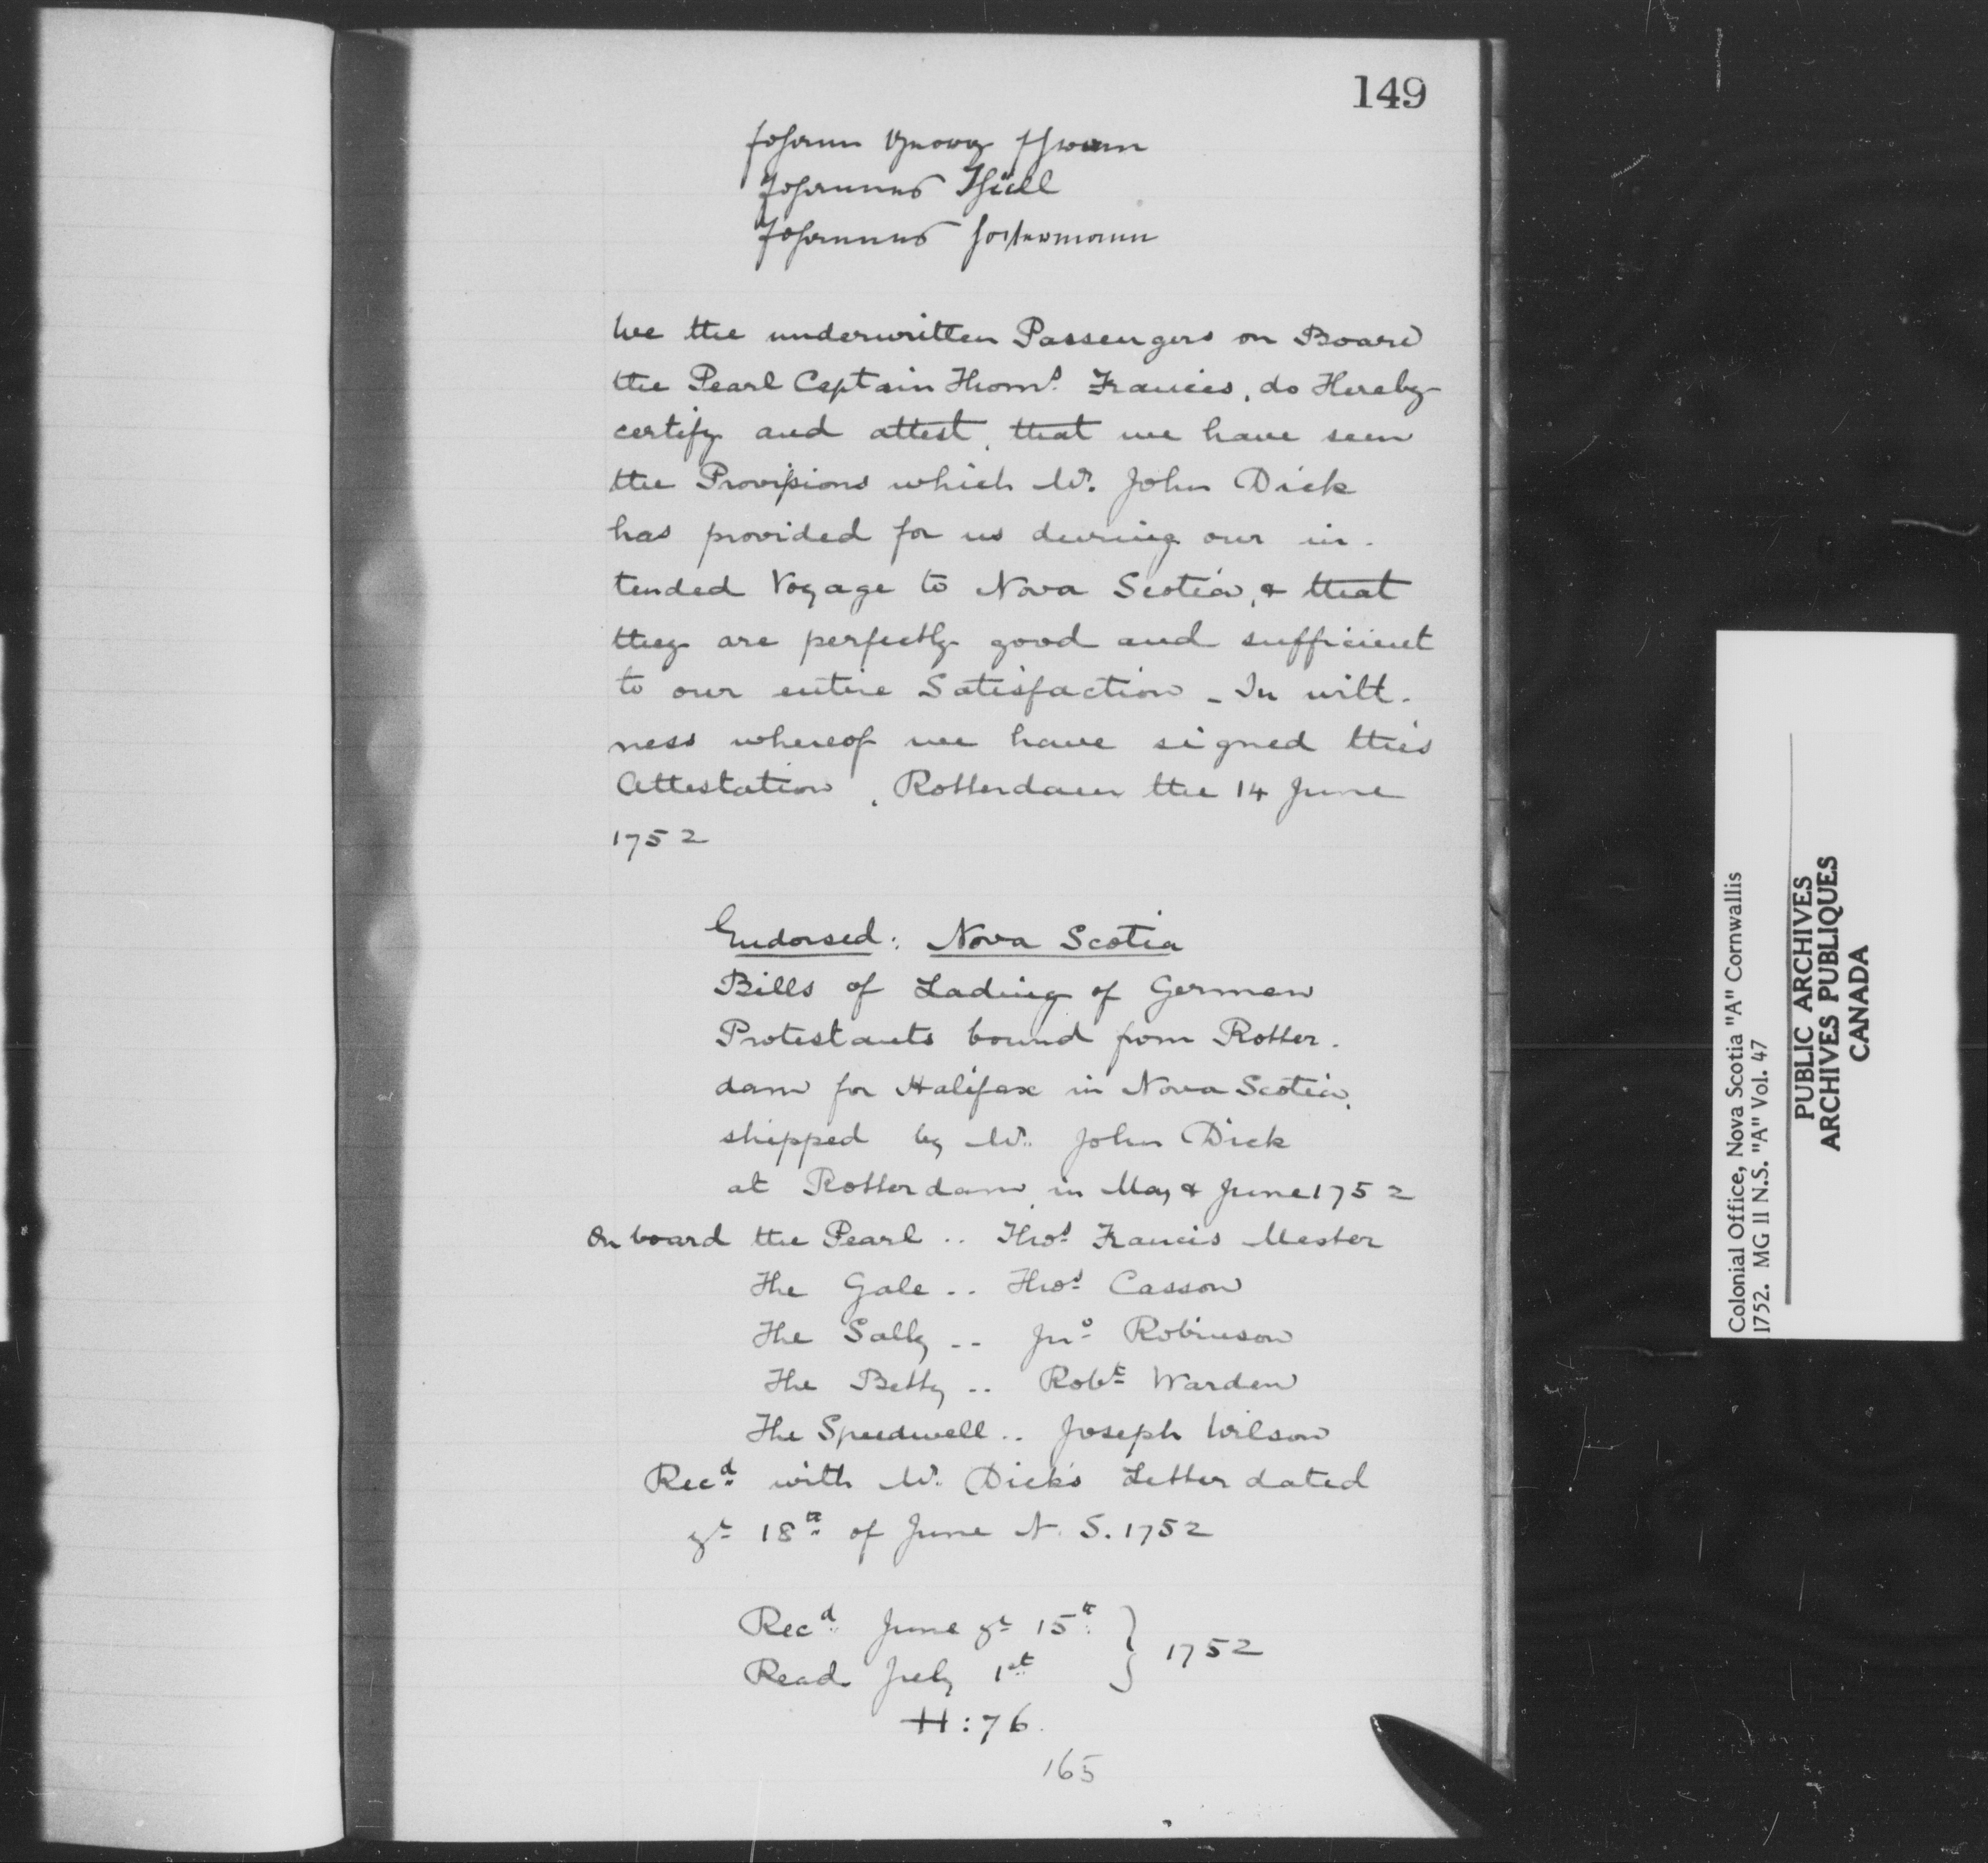 149
Johann Georg
Johannes
Johannes
We the underwritten Passengers on Board
the Pearl Captain Thom.s Francis, do Hereby
certify and attest, that we have seen
the Provisions which Mr. John Dick
has provided for us during our in-
tended Voyage to Nova Scotia, & that
they are perfectly good and sufficient
to our entire Satisfaction - In witt-
ness whereof we have signed this
Attestation. Rotterdam the 14 June
1752
Endorsed: Nova Scotia
Bills of Lading of German
Protestants bound from Rotter-
dam for Halifax in Nova Scotia,
shipped by Mr. John Dick
at Rotterdam, in May & June 1752
On board the Pearl .. Thos. Francis Master
The Gale .. Thos. Casson
The Sally .. Jno. Robinson
The Betty .. Robt. Warden
The Speedwell .. Joseph Wilson
Recd. with Mr. Dick's Letter dated
ye 18th of June N. S. 1752
Recd. June ye 15th } 1752
Read July 1st
H: 76.
165
Colonial Office, Nova Scotia "A" Cornwallis
1752. MG 11 N.S. "A" Vol. 47
PUBLIC ARCHIVES
ARCHIVES PUBLIQUES
CANADA